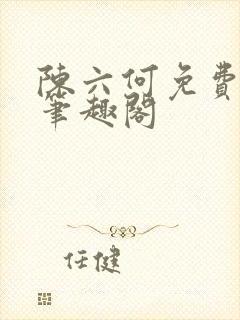 陳六何免費
筆趣閣
任健